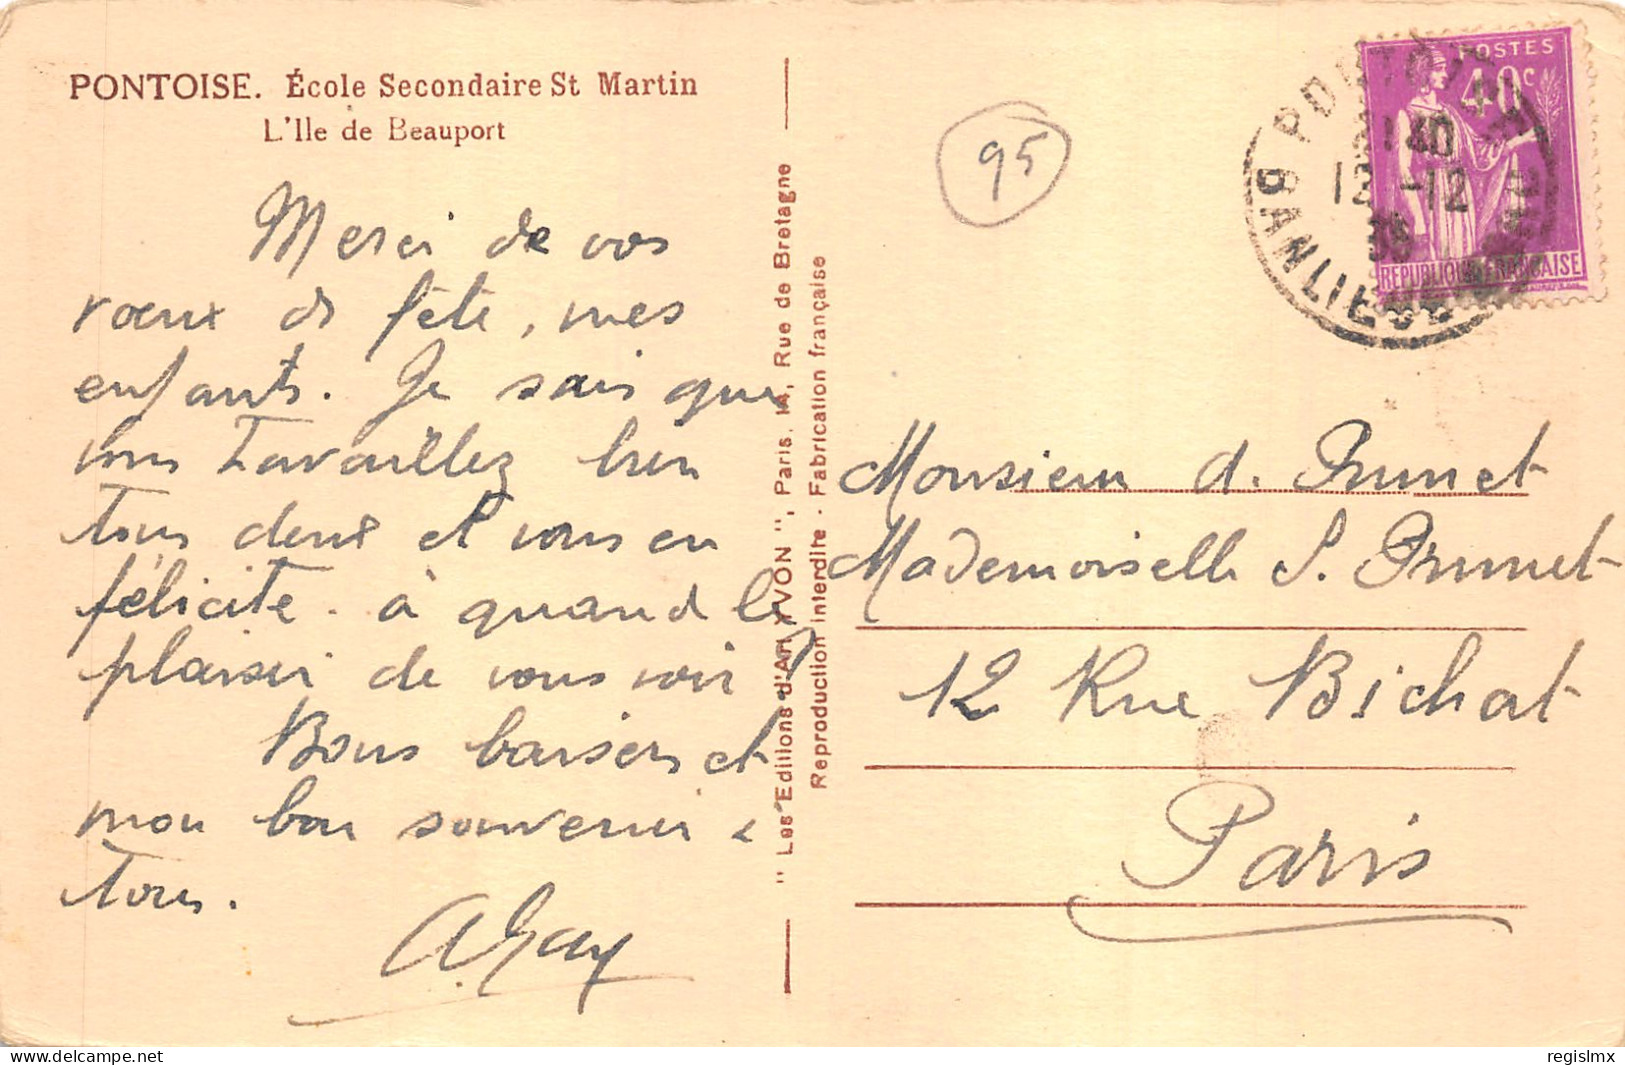 PONTOISE. École Secondaire St Martin
L'Ile de Beauport
Merci de vos
voeux de fête, mes
enfants. Je sais que
vous travaillez bien
tous deux et vous en
félicite. à quand le
plaisir de vous voir ?
Bons baisers et
mon bon souvenir à
tous.
"Les Editions d'Art YVON", Paris. 14, Rue de Bretagne
Reproduction interdite - Fabrication française
95
POSTES
40c
REPUBLIQUE FRANÇAISE
PONTOISE
12 -12
Monsieur d. Prunet
Mademoiselle S. Prunet
12 Rue Bichat
Paris
regislmx
https://www.delcampe.net